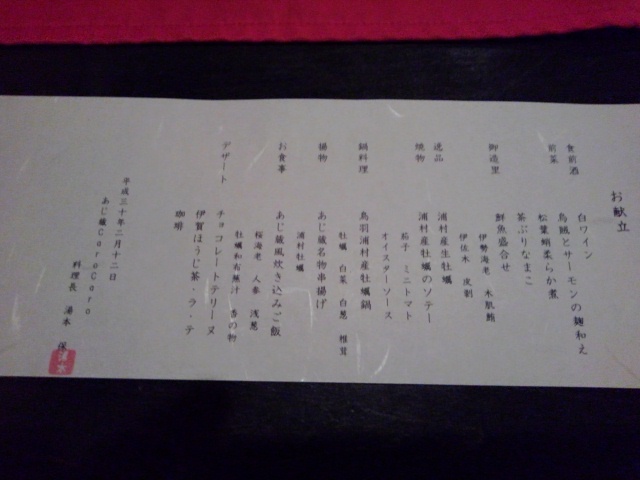 お献立
食前酒 白ワイン
前菜 烏賊とサーモンの麹和え
松葉蛸柔らか煮
茶ぶりなまこ
御造里 鮮魚盛合せ
伊勢海老 本肌鮪
伊佐木 皮剥
逸品 浦村産生牡蠣
焼物 浦村産牡蠣のソテー
茄子 ミニトマト
オイスターソース
鍋料理 鳥羽浦村産牡蠣鍋
牡蠣 白菜 白葱 椎茸
揚物 あじ蔵名物串揚げ
浦村牡蠣
お食事 あじ蔵風炊き込みご飯
桜海老 人参 浅葱
牡蠣和布赤汁 香の物
デザート チョコレートテリーヌ
伊賀ほうじ茶・ラ・テ
珈琲
平成三十年二月十二日
あじ蔵CaroCaro
料理長 湯本 保